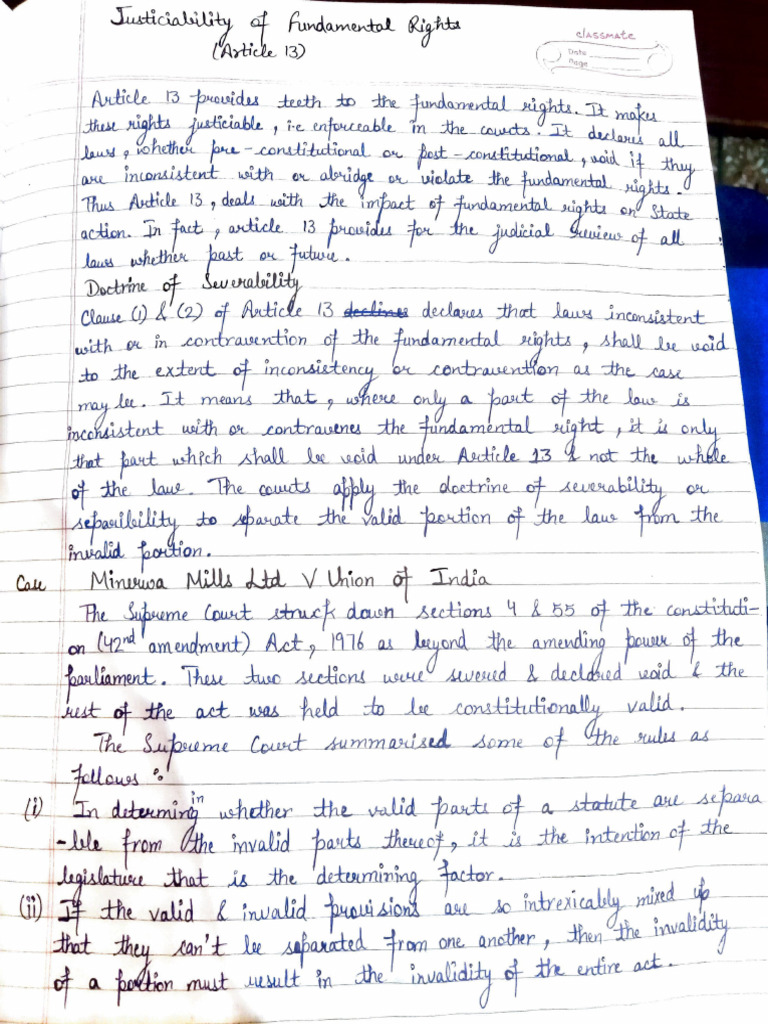 Justiciability of Fundamental Rights
(Article 13)
classmate
Date
Page
Article 13 provides teeth to the fundamental rights. It makes
these rights justiciable, i.e enforceable in the courts. It declares all
laws, whether pre-constitutional or post-constitutional, void if they
are inconsistent with or abridge or violate the fundamental rights.
Thus Article 13, deals with the impact of fundamental rights on State
action. In fact, article 13 provides for the judicial review of all
laws whether past or future.
Doctrine of Severability
Clause (1) & (2) of Article 13 declines declares that laws inconsistent
with or in contravention of the fundamental rights, shall be void
to the extent of inconsistency or contravention as the case
may be. It means that, where only a part of the law is
inconsistent with or contravenes the fundamental right, it is only
that part which shall be void under Article 13 & not the whole
of the law. The courts apply the doctrine of severability or
separibility to separate the valid portion of the law from the
invalid portion.
Case Minerwa Mills Ltd V Union of India
The Supreme Court struck down sections 4 & 55 of the constituti-
on (42nd amendment) Act, 1976 as beyond the amending power of the
parliament. These two sections were severed & declared void & the
rest of the act was held to be constitutionally valid.
The Supreme Court summarised some of the rules as
follows :-
(i) In determining in whether the valid parts of a statute are separa
-ble from the invalid parts thereof, it is the intention of the
legislature that is the determining factor.
(ii) If the valid & invalid provisions are so intrexicably mixed up
that they can't be separated from one another, then the invalidity
of a portion must result in the invalidity of the entire act.